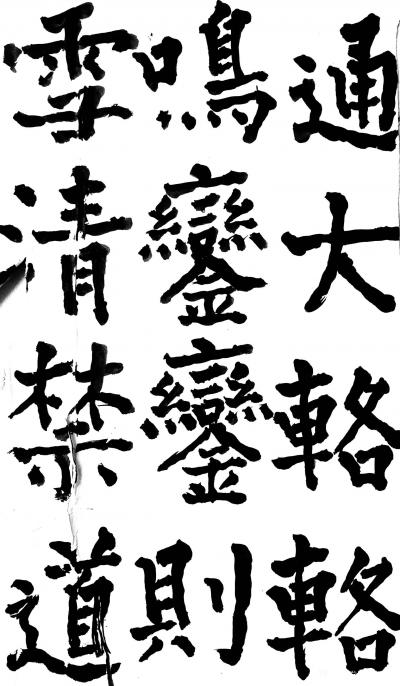 通大輅輅
鳴鑾鑾則
雪清禁道